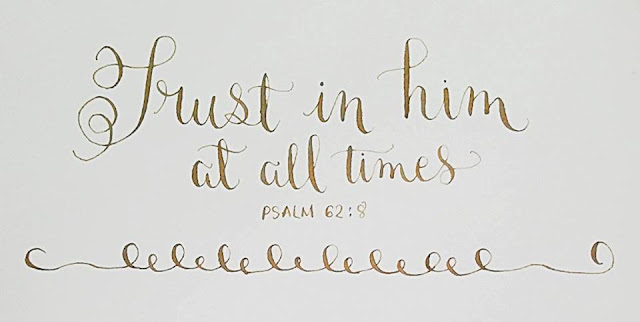 Trust in him
at all times
PSALM 62:8